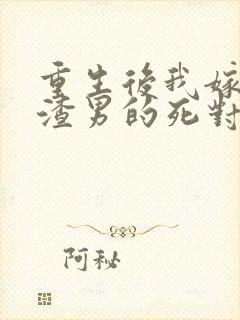 重生後我嫁
渣男的死對
阿秘